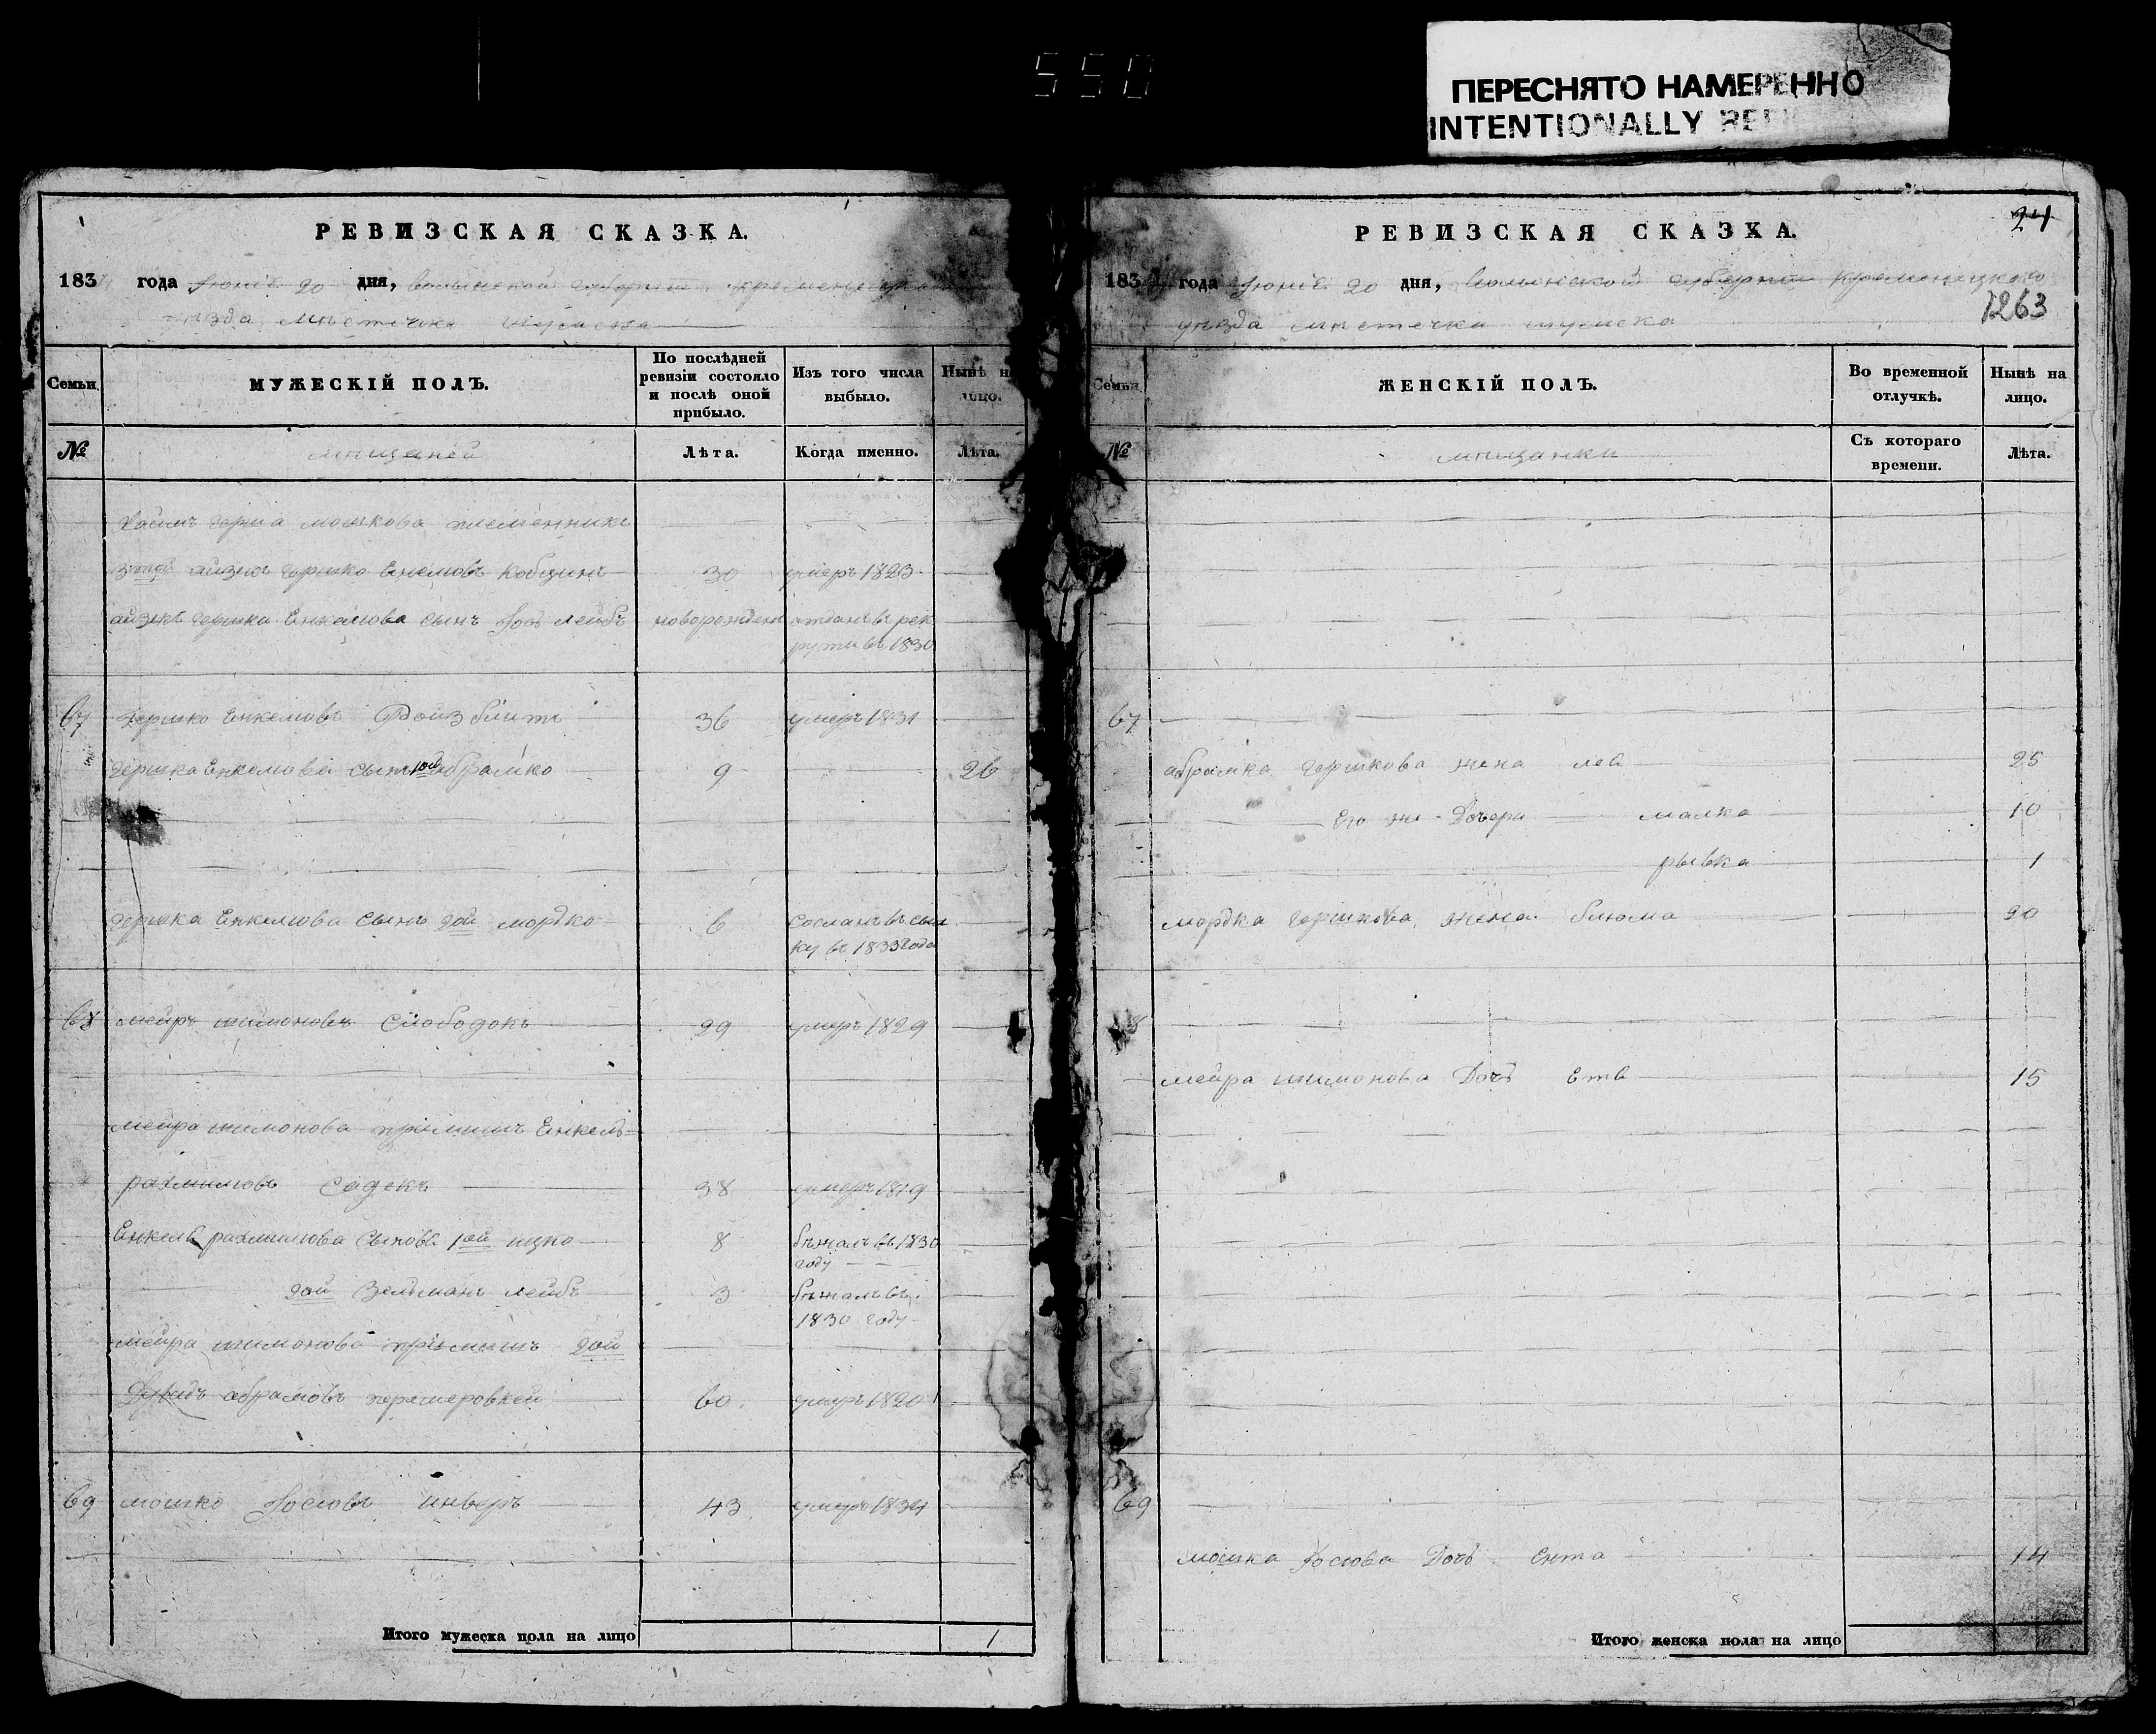 550
ПЕРЕСНЯТО НАМЕРЕННО
INTENTIONALLY
РЕВИЗСКАЯ СКАЗКА.
183 года Июня 20 дня, Волынской губернии Кременецкаго
уезда местечка Шумска
Семьи.
МУЖЕСКІЙ ПОЛЪ.
По послѣдней ревизіи состояло и послѣ оной прибыло.
Изъ того числа выбыло.
Нынѣ на лицо.
№
мещаней
Лѣта.
Когда именно.
Лѣта.
Хаимъ герша мошкова племенники
айзикъ гершко Енкелювъ 30 умеръ 1823
айзика гершка Енкелюва сынъ Иось лейбъ новорожден отданъ въ рек
руты въ 1830
67 гершко Енкелювъ Ройзблитъ 36 умеръ 1831
гершка Енкелюва сынъ 1ой абрамко 9 26
гершка Енкелюва сынъ 2ой мордко 6 сосланъ въ ссыл
ку въ 1833 года
68 мейръ шимоновъ Слободокъ 29 умеръ 1829
мейра шимонова примишъ Енкель
рахмиловъ Садекъ 38 умеръ 1819
Енкеля рахмилюва сыновя 1ой ицко 8 бежалъ въ 1830
году
2ой Зельманъ лейбъ 3 бежалъ въ
1830 году
мейра шимонова примишъ 2ой
абрамовъ 60 умеръ 1820
69 мошко Иосювъ 43 умеръ 1834
Итого мужеска пола на лицо 1
21
РЕВИЗСКАЯ СКАЗКА.
183 года Июня 20 дня, Волынской губернии Кременецкаго
1263
уезда местечка Шумска
Семьи.
ЖЕНСКІЙ ПОЛЪ.
Во временной отлучкѣ.
Нынѣ на лицо.
№
мещанки
Съ котораго времени.
Лѣта.
67
абрамка гершкова жена лея 25
Его же Дочери малка 10
рывка 1
мордка гершкова жена блюма 20
8
мейра шимонова Дочь Етя 15
69
мошка Иосюва Дочь Ента 14
Итого женска пола на лицо